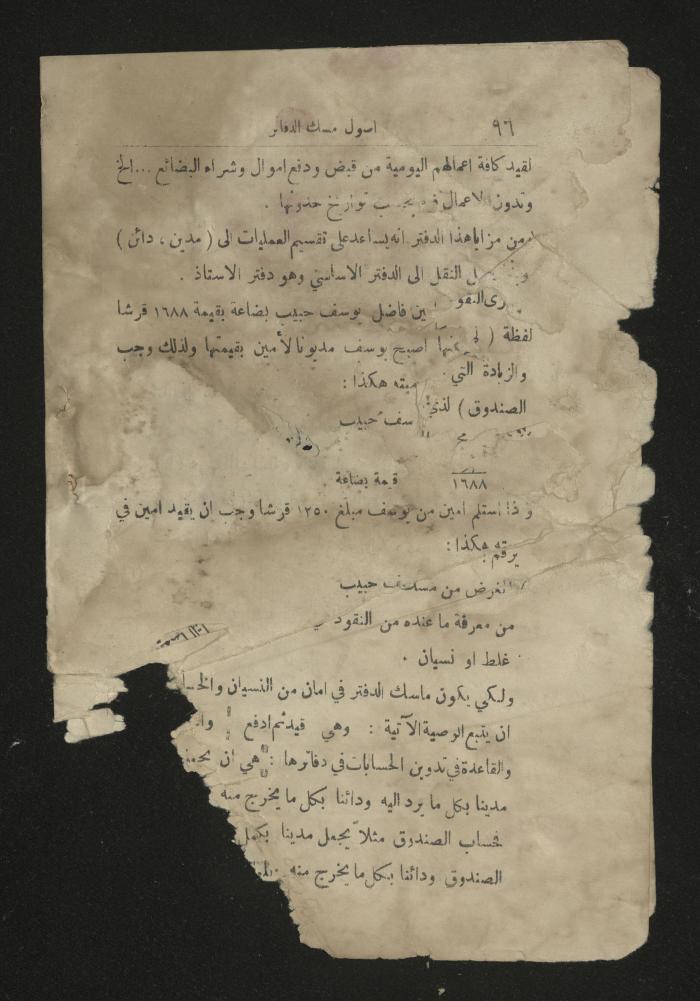 ٩٦ اصول مسك الدفاتر
لقيد كافة اعمالهم اليومية من قبض ودفع اموال وشراء البضائع ... الخ
وتدون الاعمال فيه بحسب تواريخ حدوثها .
ومن مزايا هذا الدفتر انه يساعد على تقسيم العمليات الى ( مدين ، دائن )
النقل الى الدفتر الاساسي وهو دفتر الاستاذ .
فاضل يوسف حبيب بضاعة بقيمة ١٦٨٨ قرشا
لفظة ( اصبح يوسف مديونا لأمين بقيمتها ولذلك وجب
والزيادة التي هكذا :
الصندوق ) حبيب
١٦٨٨ قيمة بضاعة
واذا استلم امين من يوسف مبلغ ١٢٥٠ قرشا وجب ان يقيد امين في
هكذا :
الغرض من حبيب
من معرفة ما عنده من النقود
غلط او نسيان .
ولكي يكون ماسك الدفتر في امان من النسيان
ان يتبع الوصية الآتية : وهي قيد ثم ادفع
والقاعدة في تدوين الحسابات في دفاترها : هي ان
مدينا بكل ما يرد اليه ودائنا بكل ما يخرج منه
فحساب الصندوق مثلاً يجعل مدينا بكل
الصندوق ودائنا بكل ما يخرج منه